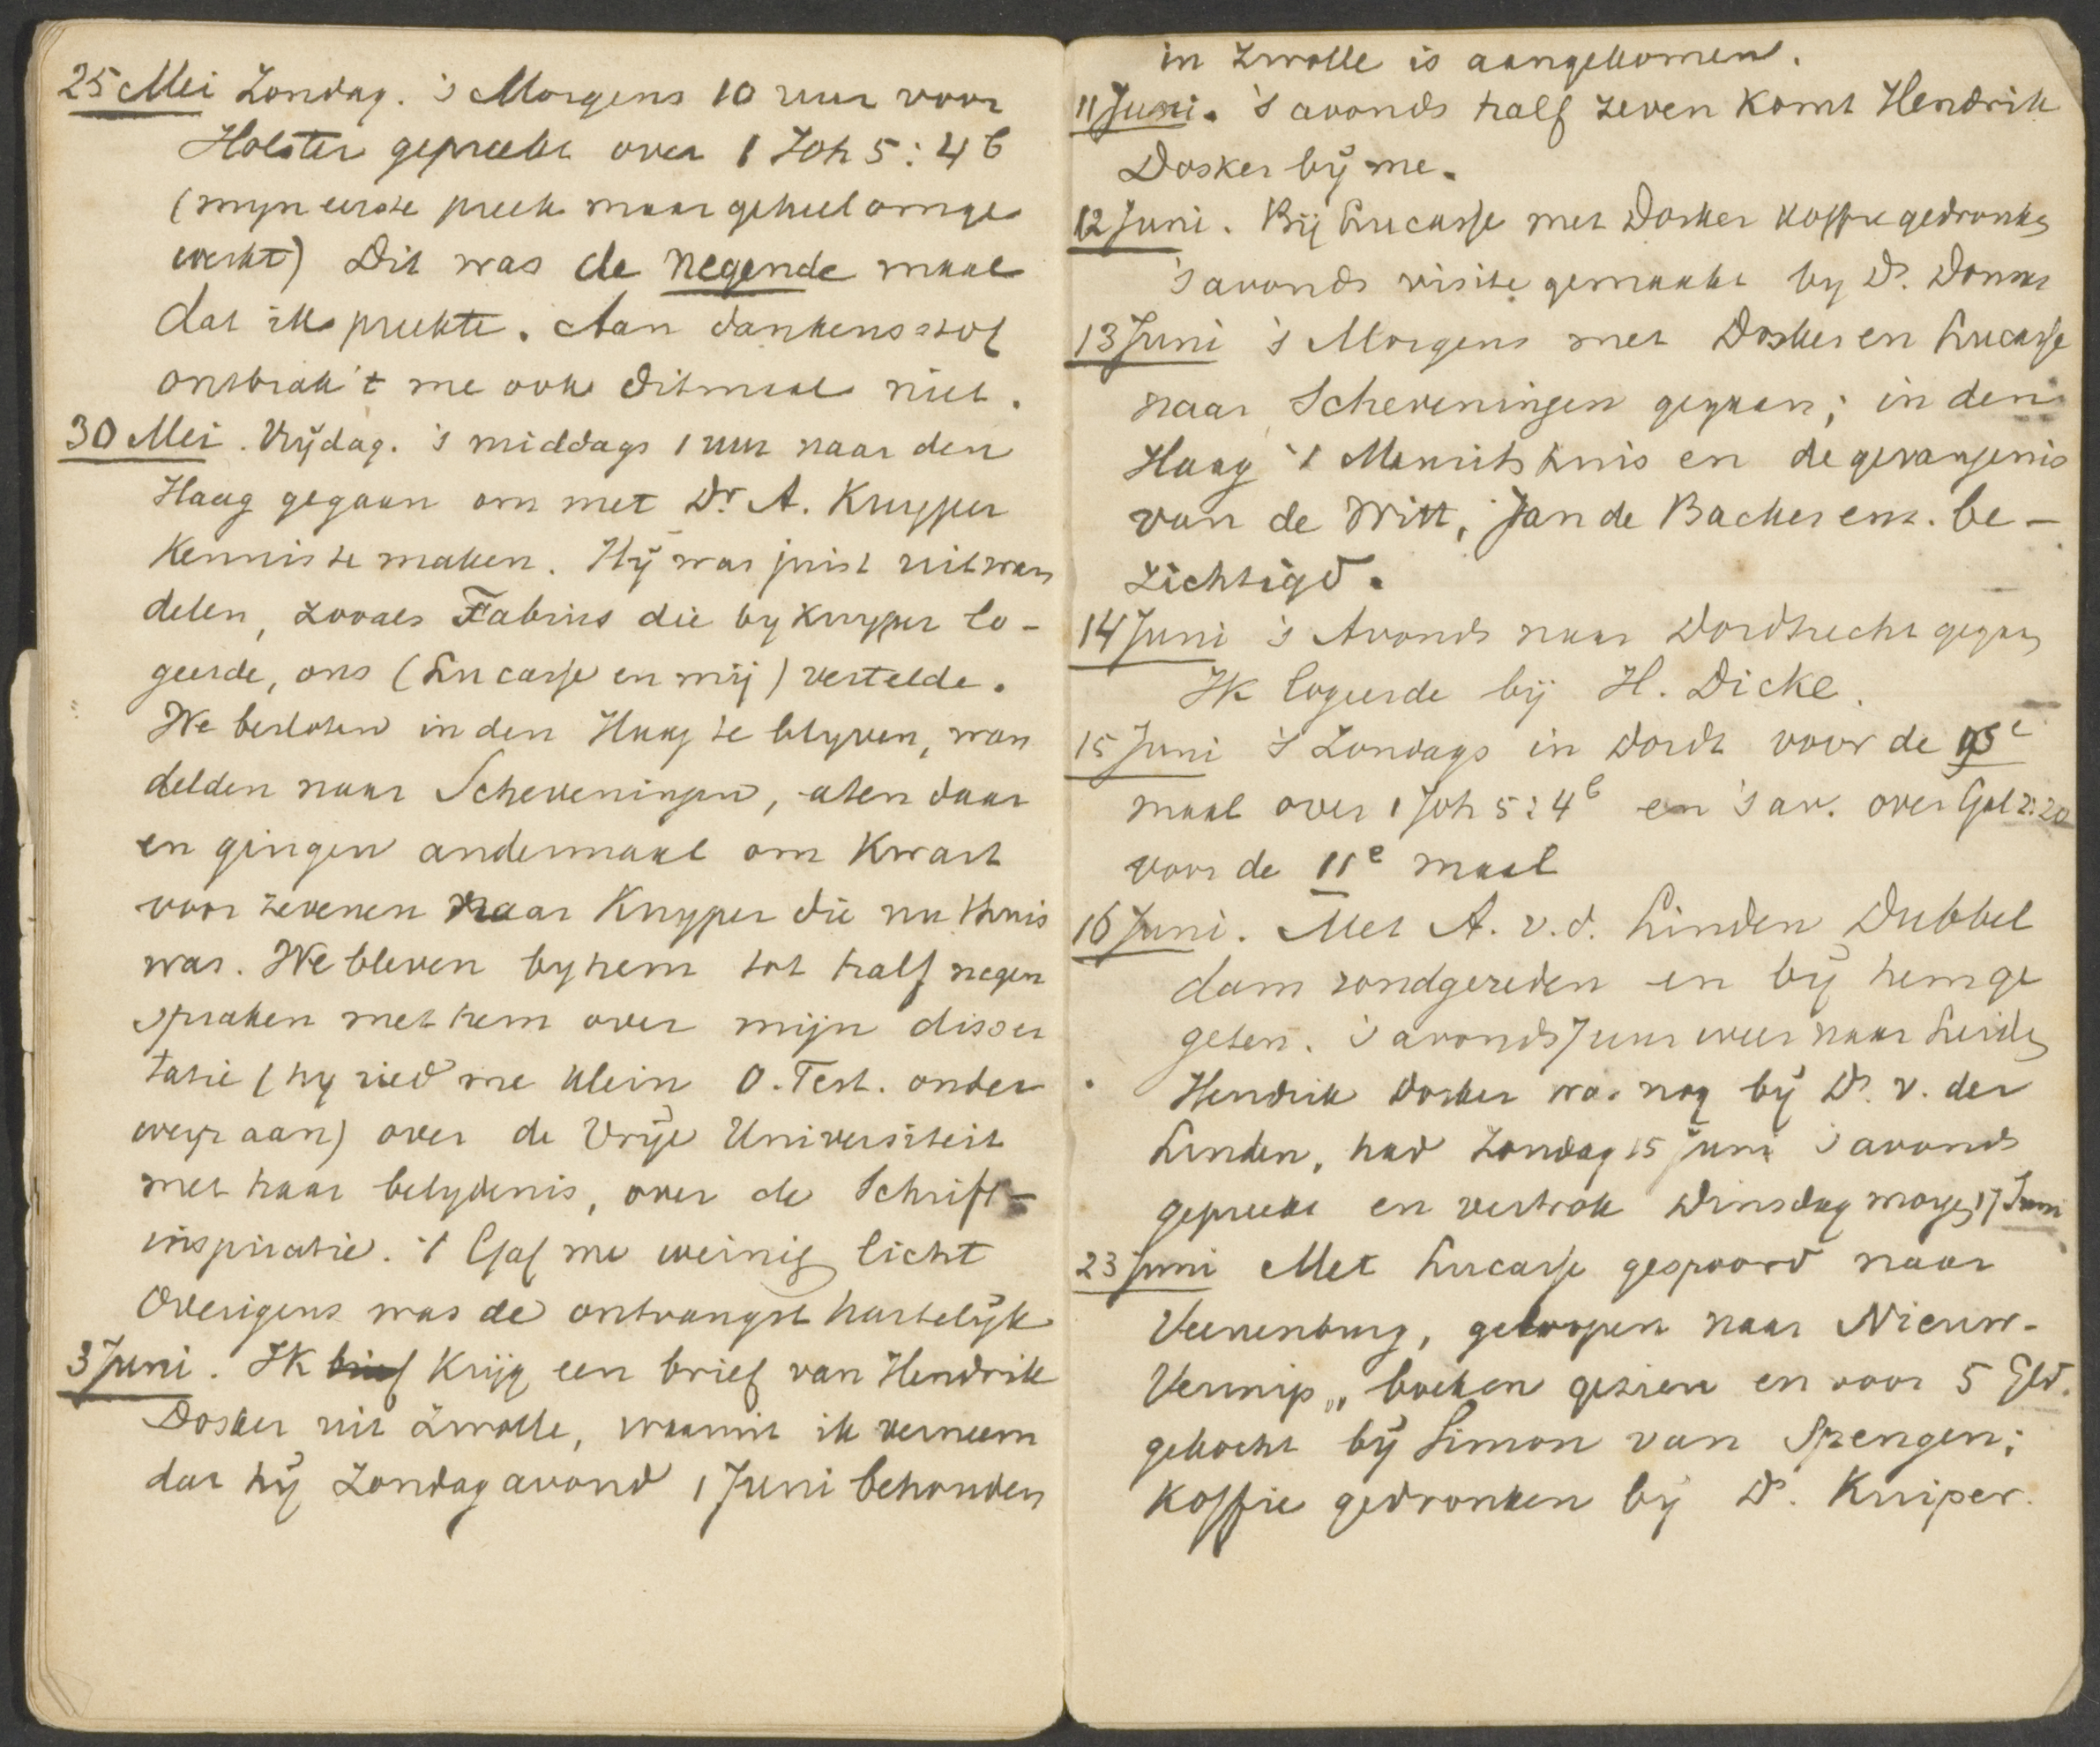 25 Mei Zondag. 's Morgens 10 uur voor
Holster gepreekt over 1 Joh 5:4b
(myn eerste preek maar geheel omge
werkt) Dit was de negende maal
dat ik preekte. Aan dankensstof
ontbrak 't me ook ditmaal niet.
30 Mei. Vrijdag. 's middags 1 uur naar den
Haag gegaan om met Dr. A. Kuyper
Kennis te maken. Hij was juist uitwan
delen, zooals Fabius die by Kuyper lo-
geerde, ons (Lucasse en mij) vertelde.
We besloten in den Haag te blyven, wan
delden naar Scheveningen, aten daar
en gingen andermaal om Kwart
voor zevenen naar Kuyper die nu thuis
was. We bleven by hem tot half negen
spraken met hem over mijn disser
tatie (hy ried me klein O. Test. onder
werp aan) over de Vrije Universiteit
met haar belydenis, over de Schrift-
inspiratie. 't Gaf me weinig licht
Overigens was de ontvangst hartelijk
3 Juni. Ik brief Krijg een brief van Hendrik
Dosker uit Zwolle, waaruit ik verneem
dat hij Zondagavond 1 Juni behouden
in Zwolle is aangekomen.
11 Juni. 's avonds half zeven komt Hendrik
Dosker bij me.
12 Juni. Bij Lucasse met Dosker koffie gedronken
's avonds visite gemaakt by Ds. Donner
13 Juni 's Morgens met Dosker en Lucasse
naar Scheveningen gegaan; in den
Haag 't Mauritshuis en de gevangenis
van de Witt, Jan de Backer enz. be-
zichtigd.
14 Juni 's Avonds naar Dordrecht gegaan
Ik logeerde bij H. Dicke.
15 Juni 's Zondags in Dordt voor de
maal over 1 Joh 5:4b en 's av. over Gal 2:20
voor de 11e maal
16 Juni. Met A. v. d. Linden Dubbel
dam rondgereden en bij hem ge
geten. 's avonds 7 uur weer naar Leiden
Hendrik Dosker was nog bij Ds. v. der
Linden, had Zondag 15 Juni 's avonds
gepreekt en vertrok Dinsdag morgen 17 Juni
23 Juni Met Lucasse gespoord naar
Veenenburg, geloopen naar Nieuw-
Vennip, boeken gezien en voor 5 Gld.
gekocht bij Simon van Spengen;
Koffie gedronken bij Ds. Kuiper.